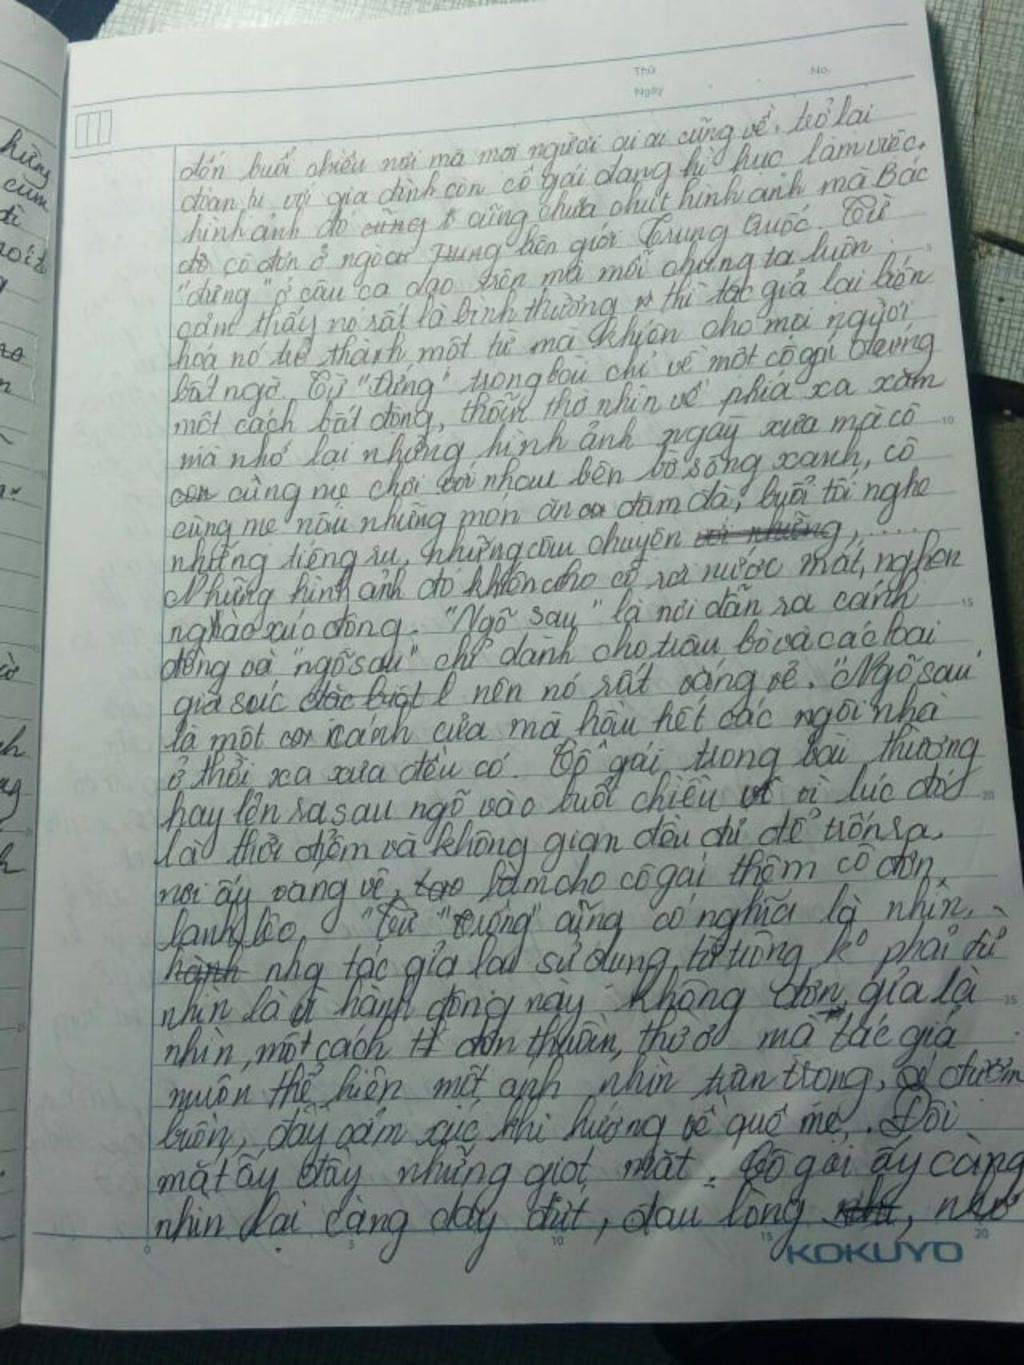 Thứ
No.
Ngày
đến buổi chiều nơi mà mọi người ai ai cũng về, trở lại
đoàn tụ với gia đình còn cô gái đang hì hục làm việc,
hình ảnh đó cũng chứa chút hình ảnh mà Bác
đã cô đơn ở biên giới Trung Quốc. Từ
"đứng" ở câu ca dao trên mà mỗi chúng ta luôn
cảm thấy nó rất là bình thường thì tác giả lại biến
hoá nó trở thành một từ mà khiến cho mọi người
bất ngờ. Từ "Đứng" trong bài chỉ về một cô gái đứng
một cách bất động, thẫn thờ nhìn về phía xa xăm
mà nhớ lại những hình ảnh ngày xưa mà cô
cùng mẹ chơi với nhau bên bờ sông xanh, cô
cùng mẹ nấu những món ăn đậm đà, buổi tối nghe
những tiếng ru, những câu chuyện, .....
Những hình ảnh đó khiến cho cô rơi nước mắt, nghẹn
nghào xúc động. "Ngõ sau" là nơi dẫn ra cánh
đồng và "ngõ sau" chỉ dành cho trâu bò và các loài
gia súc nên nó rất vắng vẻ. "Ngõ sau"
là một cánh cửa mà hầu hết các ngôi nhà
ở thời xa xưa đều có. Cô gái trong bài thường
hay lên ra sau ngõ vào buổi chiều vì lúc đó
là thời điểm và không gian đều chỉ để trốn ra,
nơi ấy vắng vẻ, làm cho cô gái thêm cô đơn,
lạnh lẽo. "Từ "trông" cũng có nghĩa là nhìn,
nhg tác giả lại sử dụng từ trông k phải từ
nhìn là vì hành động này không đơn giả là
nhìn, một cách đơn thuần, thờ ơ mà tác giả
muốn thể hiện một ánh nhìn trân trọng, đượm
buồn, đầy cảm xúc khi hướng về quê mẹ. Đôi
mắt ấy đầy những giọt mắt. Cô gái ấy càng
nhìn lại càng day dứt, đau lòng, nhớ
KOKUYO